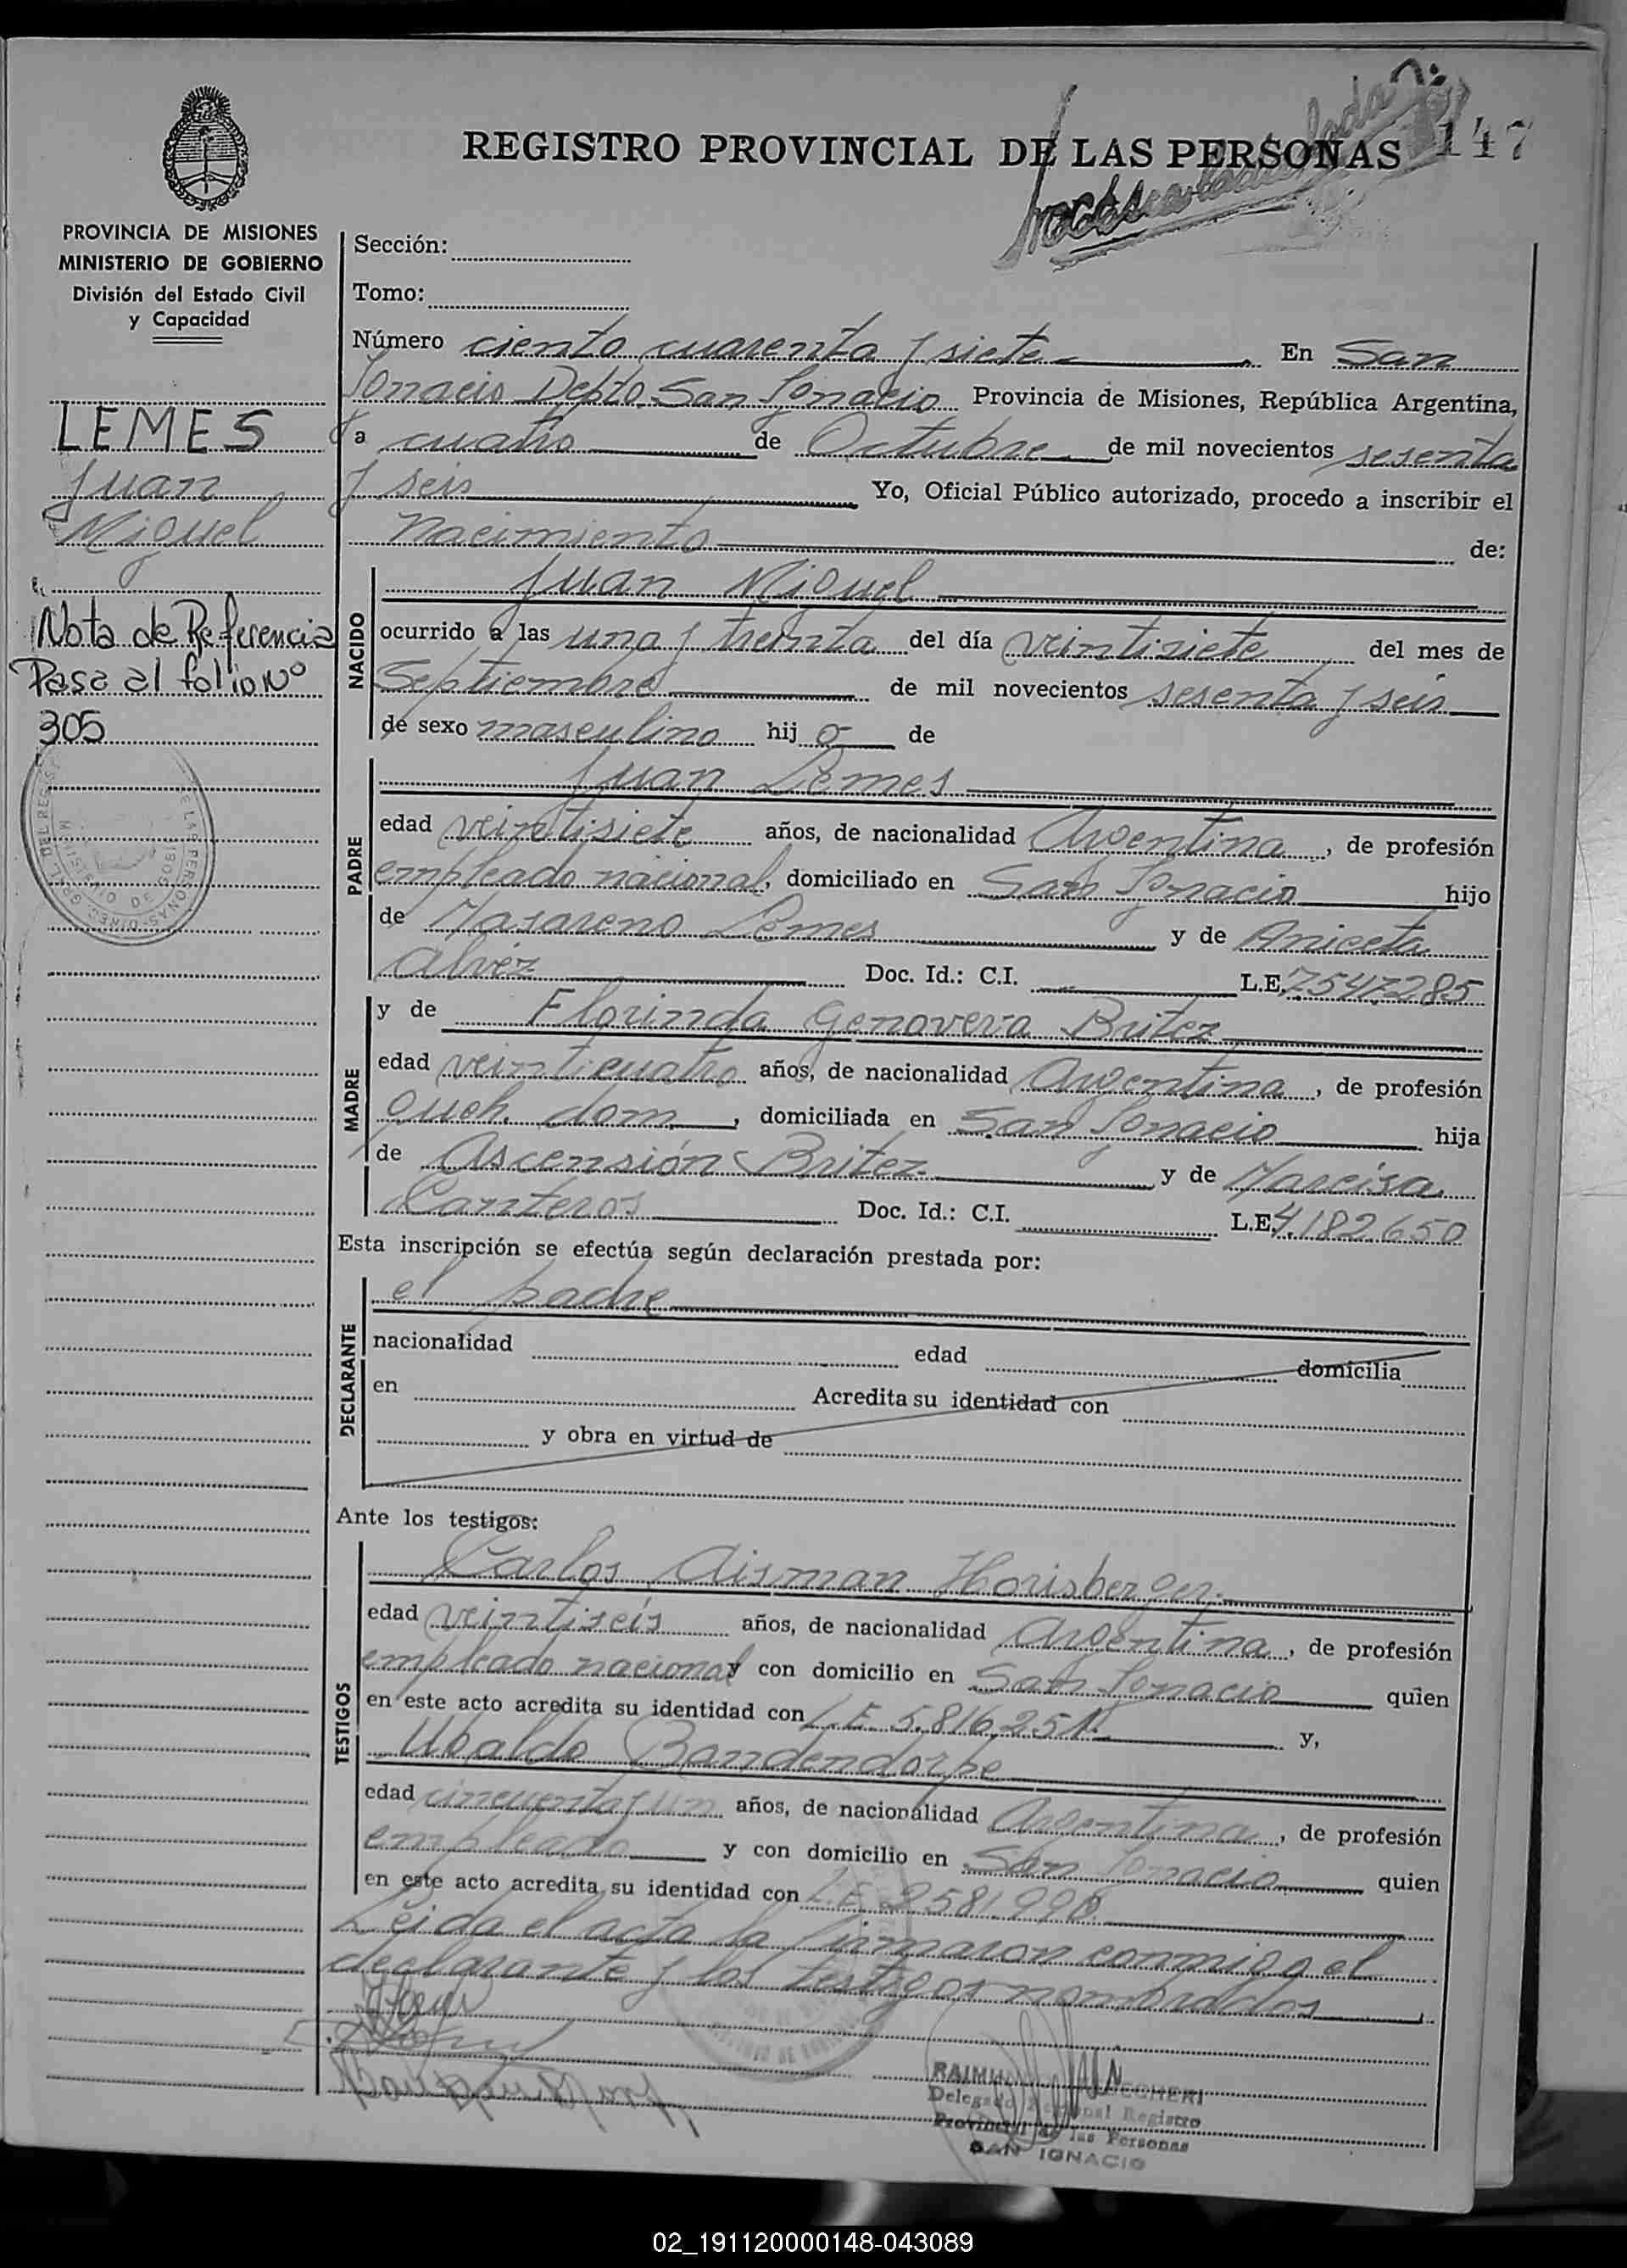 147
REGISTRO PROVINCIAL DE LAS PERSONAS
PROVINCIA DE MISIONES
MINISTERIO DE GOBIERNO
División del Estado Civil
y Capacidad
LEMES
Juan
Miguel
Nota de Referencia
Pasa al folio Nº
305
Sección:
Tomo:
Número ciento cuarenta y siete En San
Ignacio Depto. San Ignacio Provincia de Misiones, República Argentina,
a cuatro de Octubre de mil novecientos sesenta
y seis Yo, Oficial Público autorizado, procedo a inscribir el
nacimiento de:
NACIDO
Juan Miguel
ocurrido a las una y treinta del día veintisiete del mes de
Septiembre de mil novecientos sesenta y seis
de sexo masculino hij o de
PADRE
Juan Lemes
edad veintisiete años, de nacionalidad Argentina, de profesión
empleado nacional, domiciliado en San Ignacio hijo
de Nasareno Lemes y de Aniceta
Alvez Doc. Id.: C.I. L.E. 7547285
MADRE
y de Florinda Genoveva Britez
edad veinticuatro años, de nacionalidad Argentina, de profesión
queh. dom., domiciliada en San Ignacio hija
de Ascensión Britez y de Narcisa
Canteros Doc. Id.: C.I. L.E. 4.182.650
Esta inscripción se efectúa según declaración prestada por:
DECLARANTE
el padre
nacionalidad edad domicilia
en Acredita su identidad con
y obra en virtud de
Ante los testigos:
TESTIGOS
Carlos Aisman Horisberger
edad veintiseis años, de nacionalidad Argentina, de profesión
empleado nacional y con domicilio en San Ignacio quien
en este acto acredita su identidad con L.E. 5.816.251 y,
Ubaldo Bandendorpe
edad cincuenta y un años, de nacionalidad Argentina, de profesión
empleado y con domicilio en San Ignacio quien
en este acto acredita su identidad con L.E. 2581.998
Leida el acta la firmaron conmigo el
declarante y los testigos nombrados
Delegado Registro
Provincial de las Personas
SAN IGNACIO
02_191120000148-043089